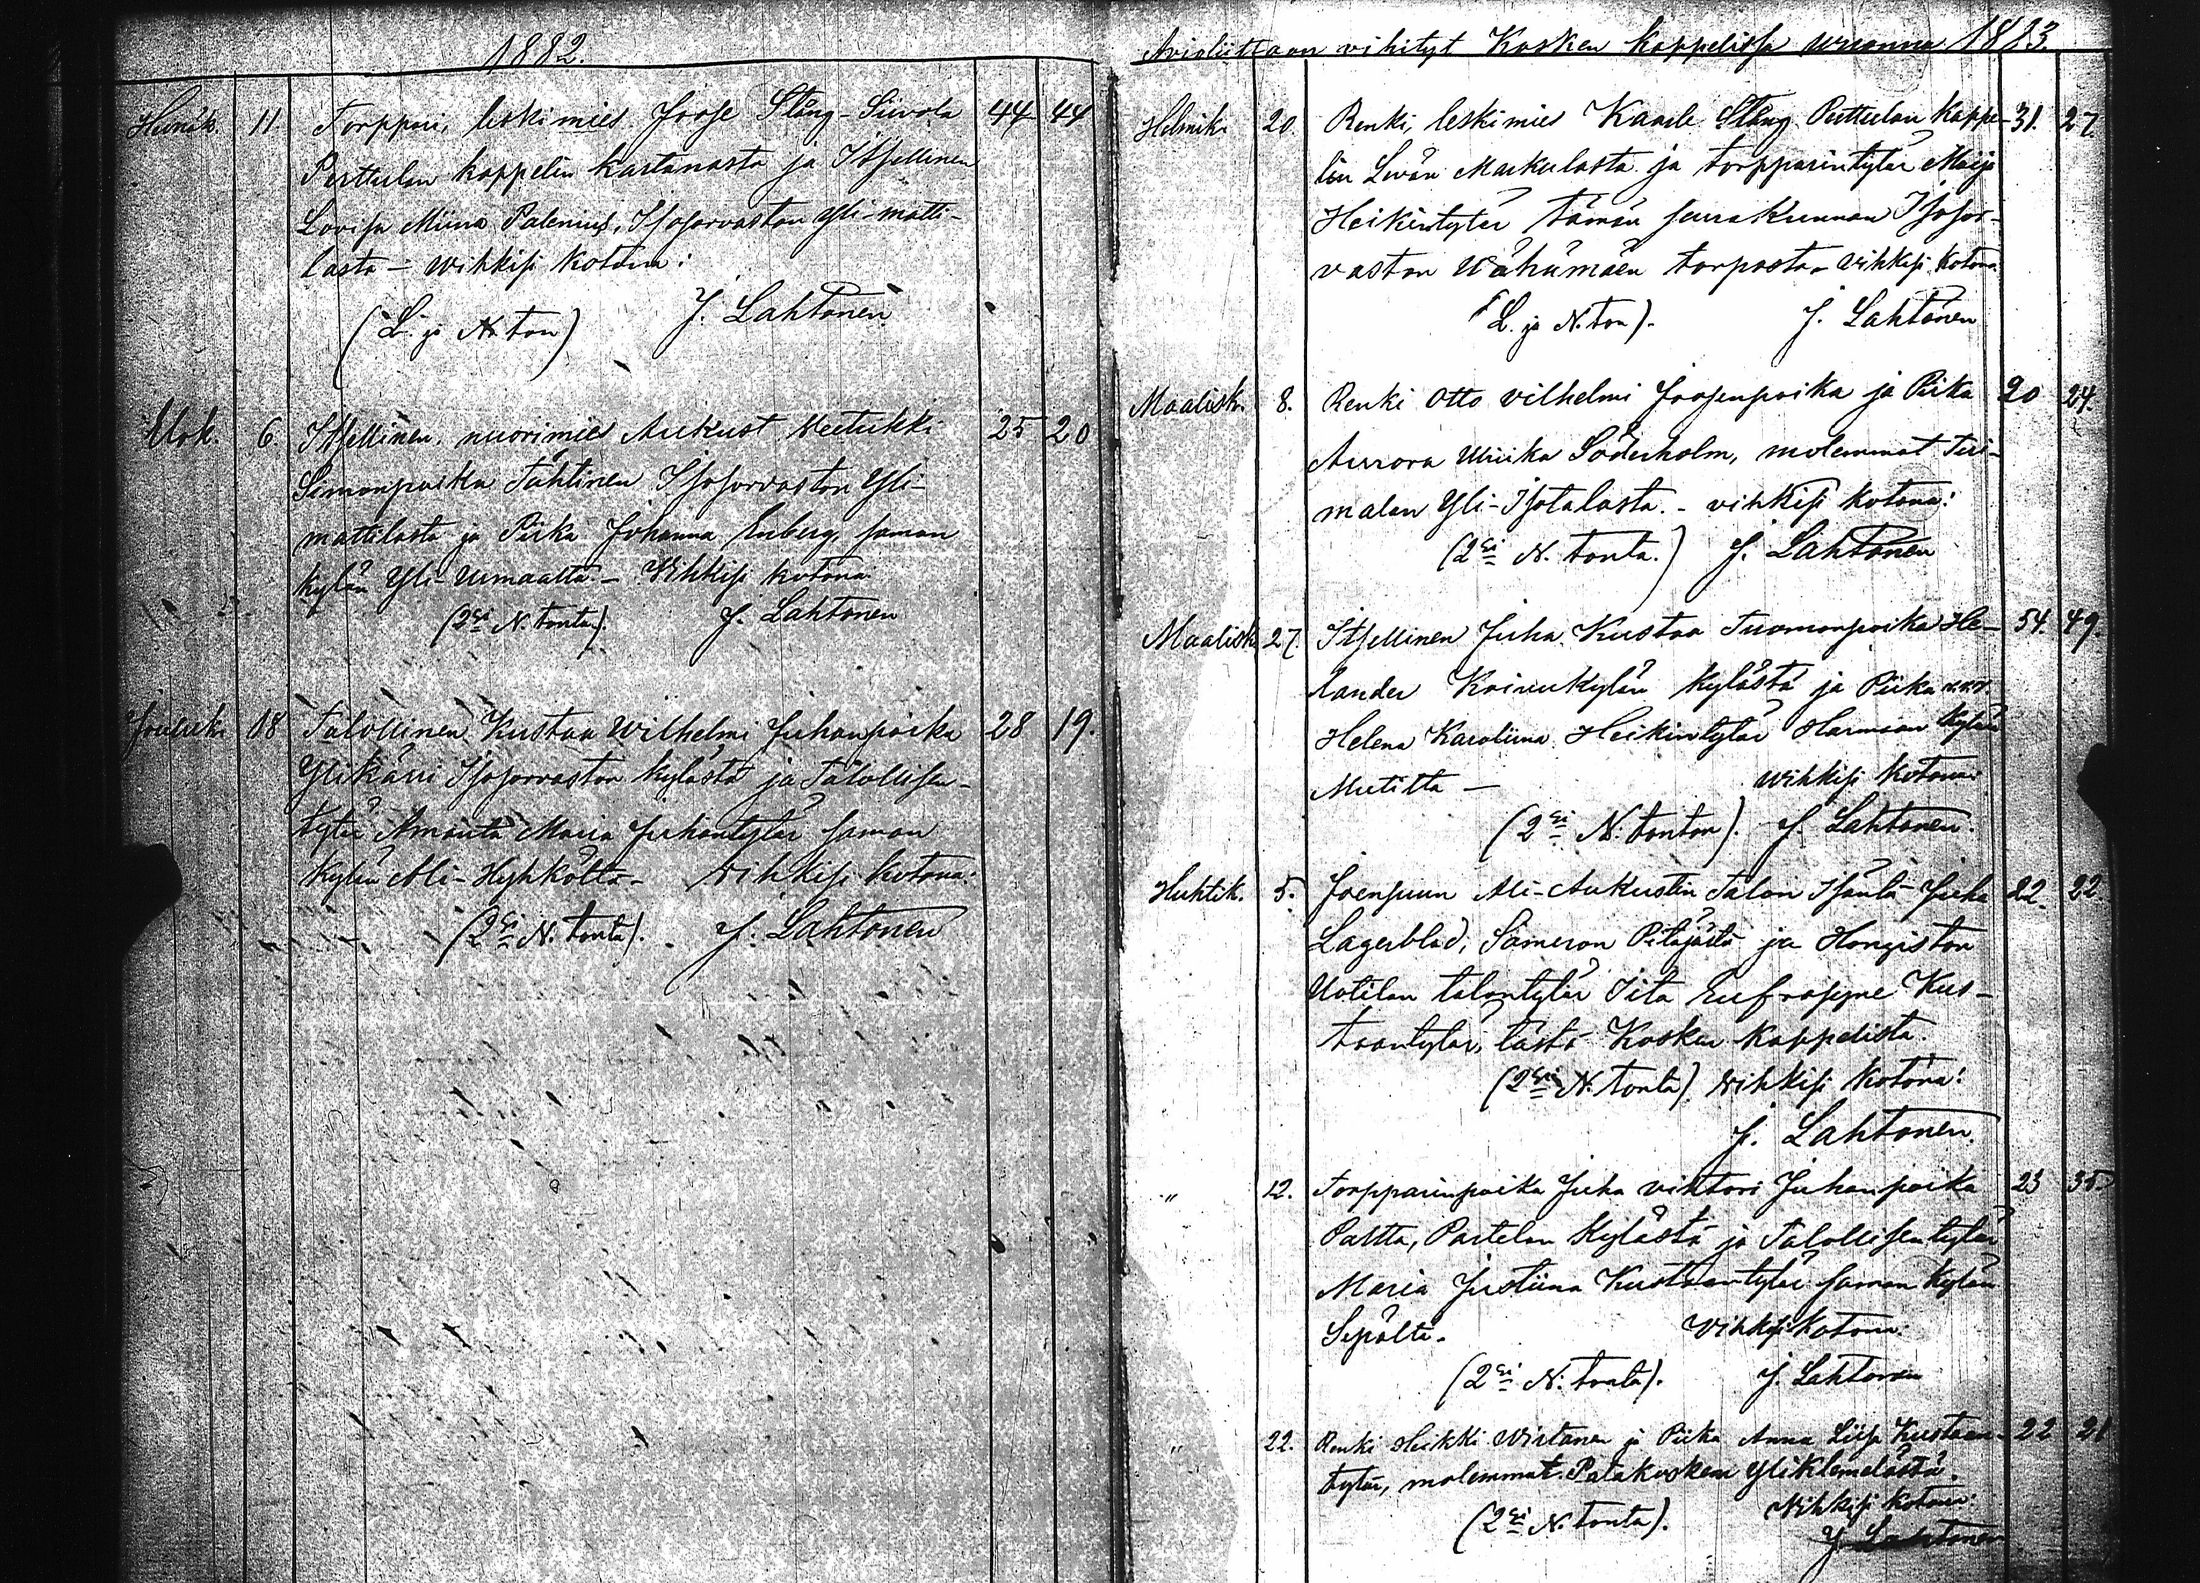 1882.
Heinäk. 11. Torppari, leskimies Joose Stång-Siivola 44 44
Perttulan kappelin kartanosta ja Itsellinen
Lovisa Miina Palenius, Isosorvaston Yli-matti-
lasta – wihkisi kotona:
(L. ja N. ton) J. Lahtonen
Elok. 6. Itsellinen, nuorimies Aukust Weetrikki 25 20
Simonpoika Tähtinen Isosorvaston Yli-
mattilasta ja Piika Johanna Enberg, saman
kylän Yli- – Wihkisi kotona:
(2si N. tonta.) J. Lahtonen
Jouluk. 18 Talollinen Kustaa Wilhelmi Juhanpoika 28 19.
Ylikärri Isosorvaston kylästä ja Talollisen-
tytär Amanta Maria Juhantytär saman
kylän Ali-Hyhköltä – wihkisi kotona:
(2si N. tonta). J. Lahtonen
Avioliittoon vihityt Kosken kappelissa wuonna 1883.
Helmik. 20. Renki, leskimies Kaarle Stång Perttulan kappe- 31. 27.
lin Markulasta ja torpparintytär Maija
Heikintytär tämän seurakunnan Isosor-
vaston Wähämäen torpasta – vihkisi kotona
(L. ja N. ton). J. Lahtonen
Maalisk. 8. Renki Otto vilhelmi Joosenpoika ja Piika 20 24.
Aurora Ulriika Söderholm, molemmat Tui-
malan Yli-Isotalosta. – vihkisi kotona:
(2si N. tonta.) J. Lahtonen
Maalisk. 27. Itsellinen Juha Kustaa Tuomonpoika He- 54. 49.
lander Koivukylän kylästä ja Piika
Helena Karoliina Heikintytär Harmaan kylän
Mutilta – wihkisi kotona:
(2si N. tonton). J. Lahtonen.
Huhtik. 5. Joensuun Ali-Aukustin Talon Isäntä Juha 22. 22.
Lagerblad, Sameron Pitäjästä ja Hongiston
Uotilan talontytär Iita Eufrosyne Kus-
taantytär, tästä Kosken kappelista.
(2si N. tonta). wihkisi kotona:
J. Lahtonen.
„ 12. Torpparinpoika Juha viktori Juhanpoika 23 35.
Partta, Partelan kylästä ja Talollisentytär
Maria Justiina Kustaantytär saman kylän
Sepältä. Vihkisi kotona:
(2si N. tonta). J. Lahtonen
„ 22. Renki Heikki Wirtanen ja Piika Anna Liisa Kustaan- 22 21
tytär, molemmat Patakosken Yliklemelästä.
(2si N. tonta). Vihkisi kotona:
J. Lahtonen